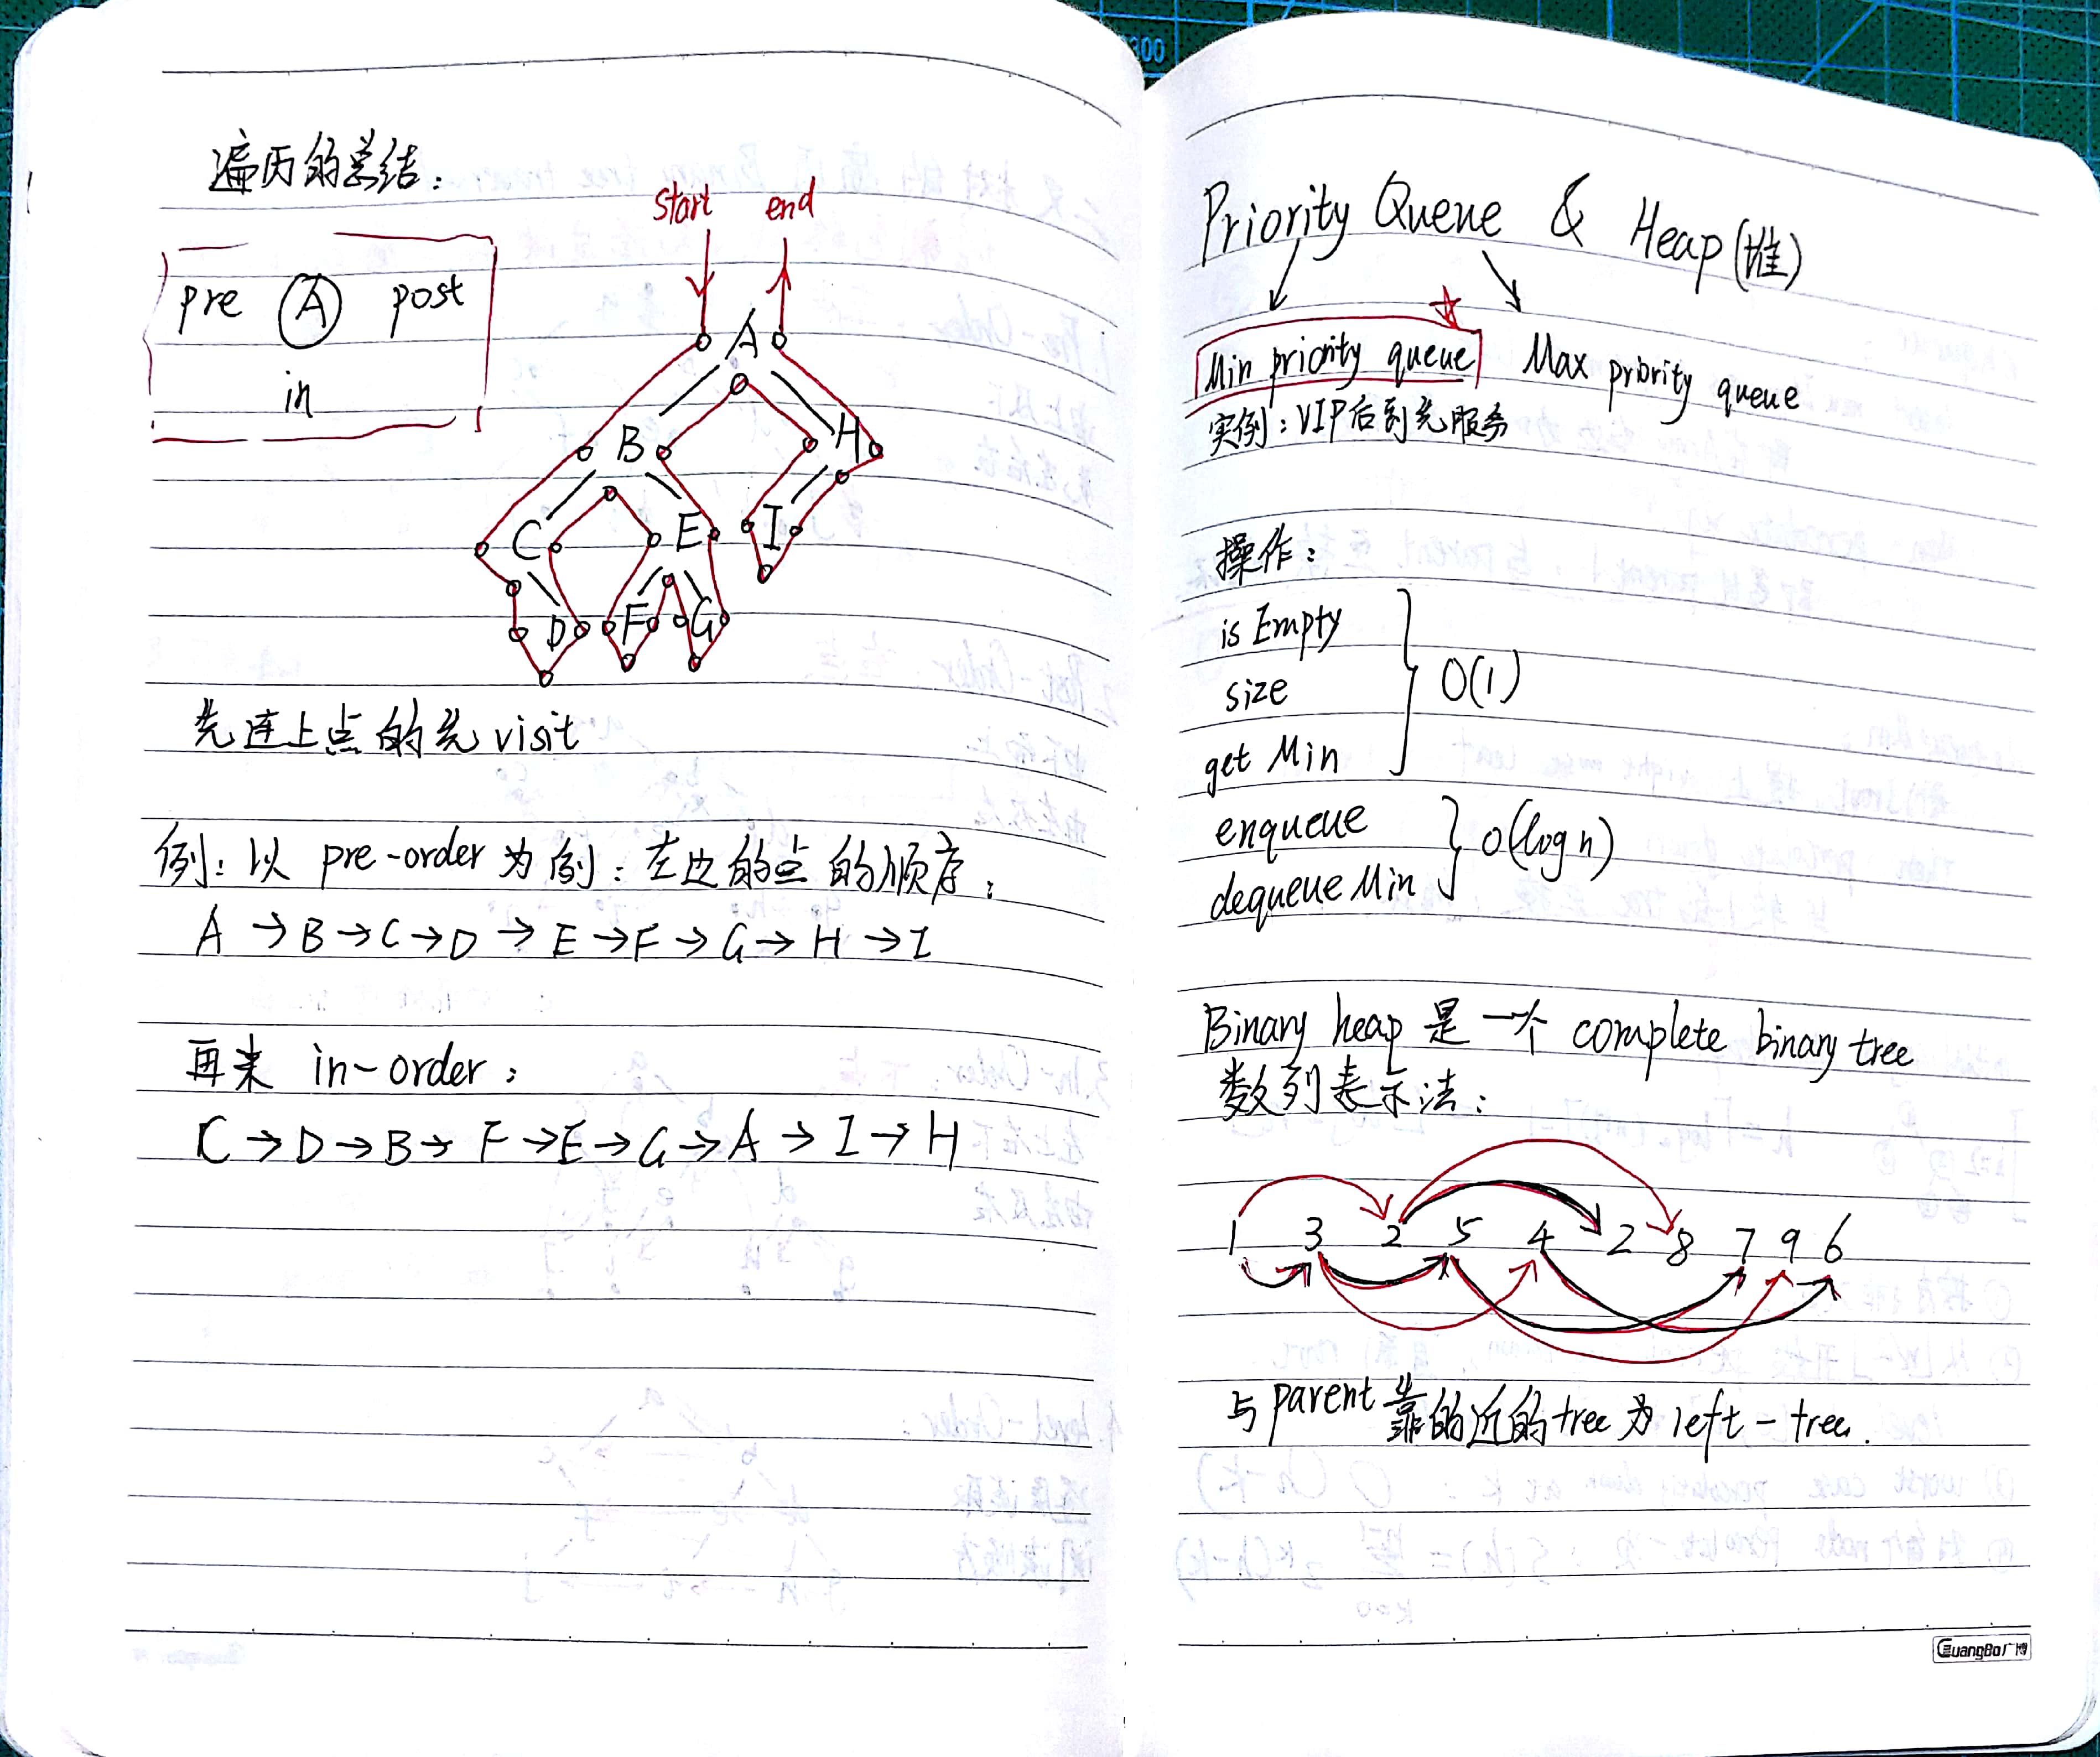 遍历的总结:
start end
pre A post
in
A
B H
C E I
D F G
先连上点的先visit
例:以 pre-order 为例:左边的点的顺序:
A → B → C → D → E → F → G → H → I
再来 in-order:
C → D → B → F → E → G → A → I → H
300
Priority Queue & Heap(堆)
Min priority queue Max priority queue
实例:VIP后到先服务
操作:
is Empty
size
get Min
O(1)
enqueue
dequeue Min
O(log n)
Binary heap 是一个 complete binary tree
数列表示法:
1 3 2 5 4 2 8 7 9 6
与parent靠的近的tree为left-tree.
GuangBo广博